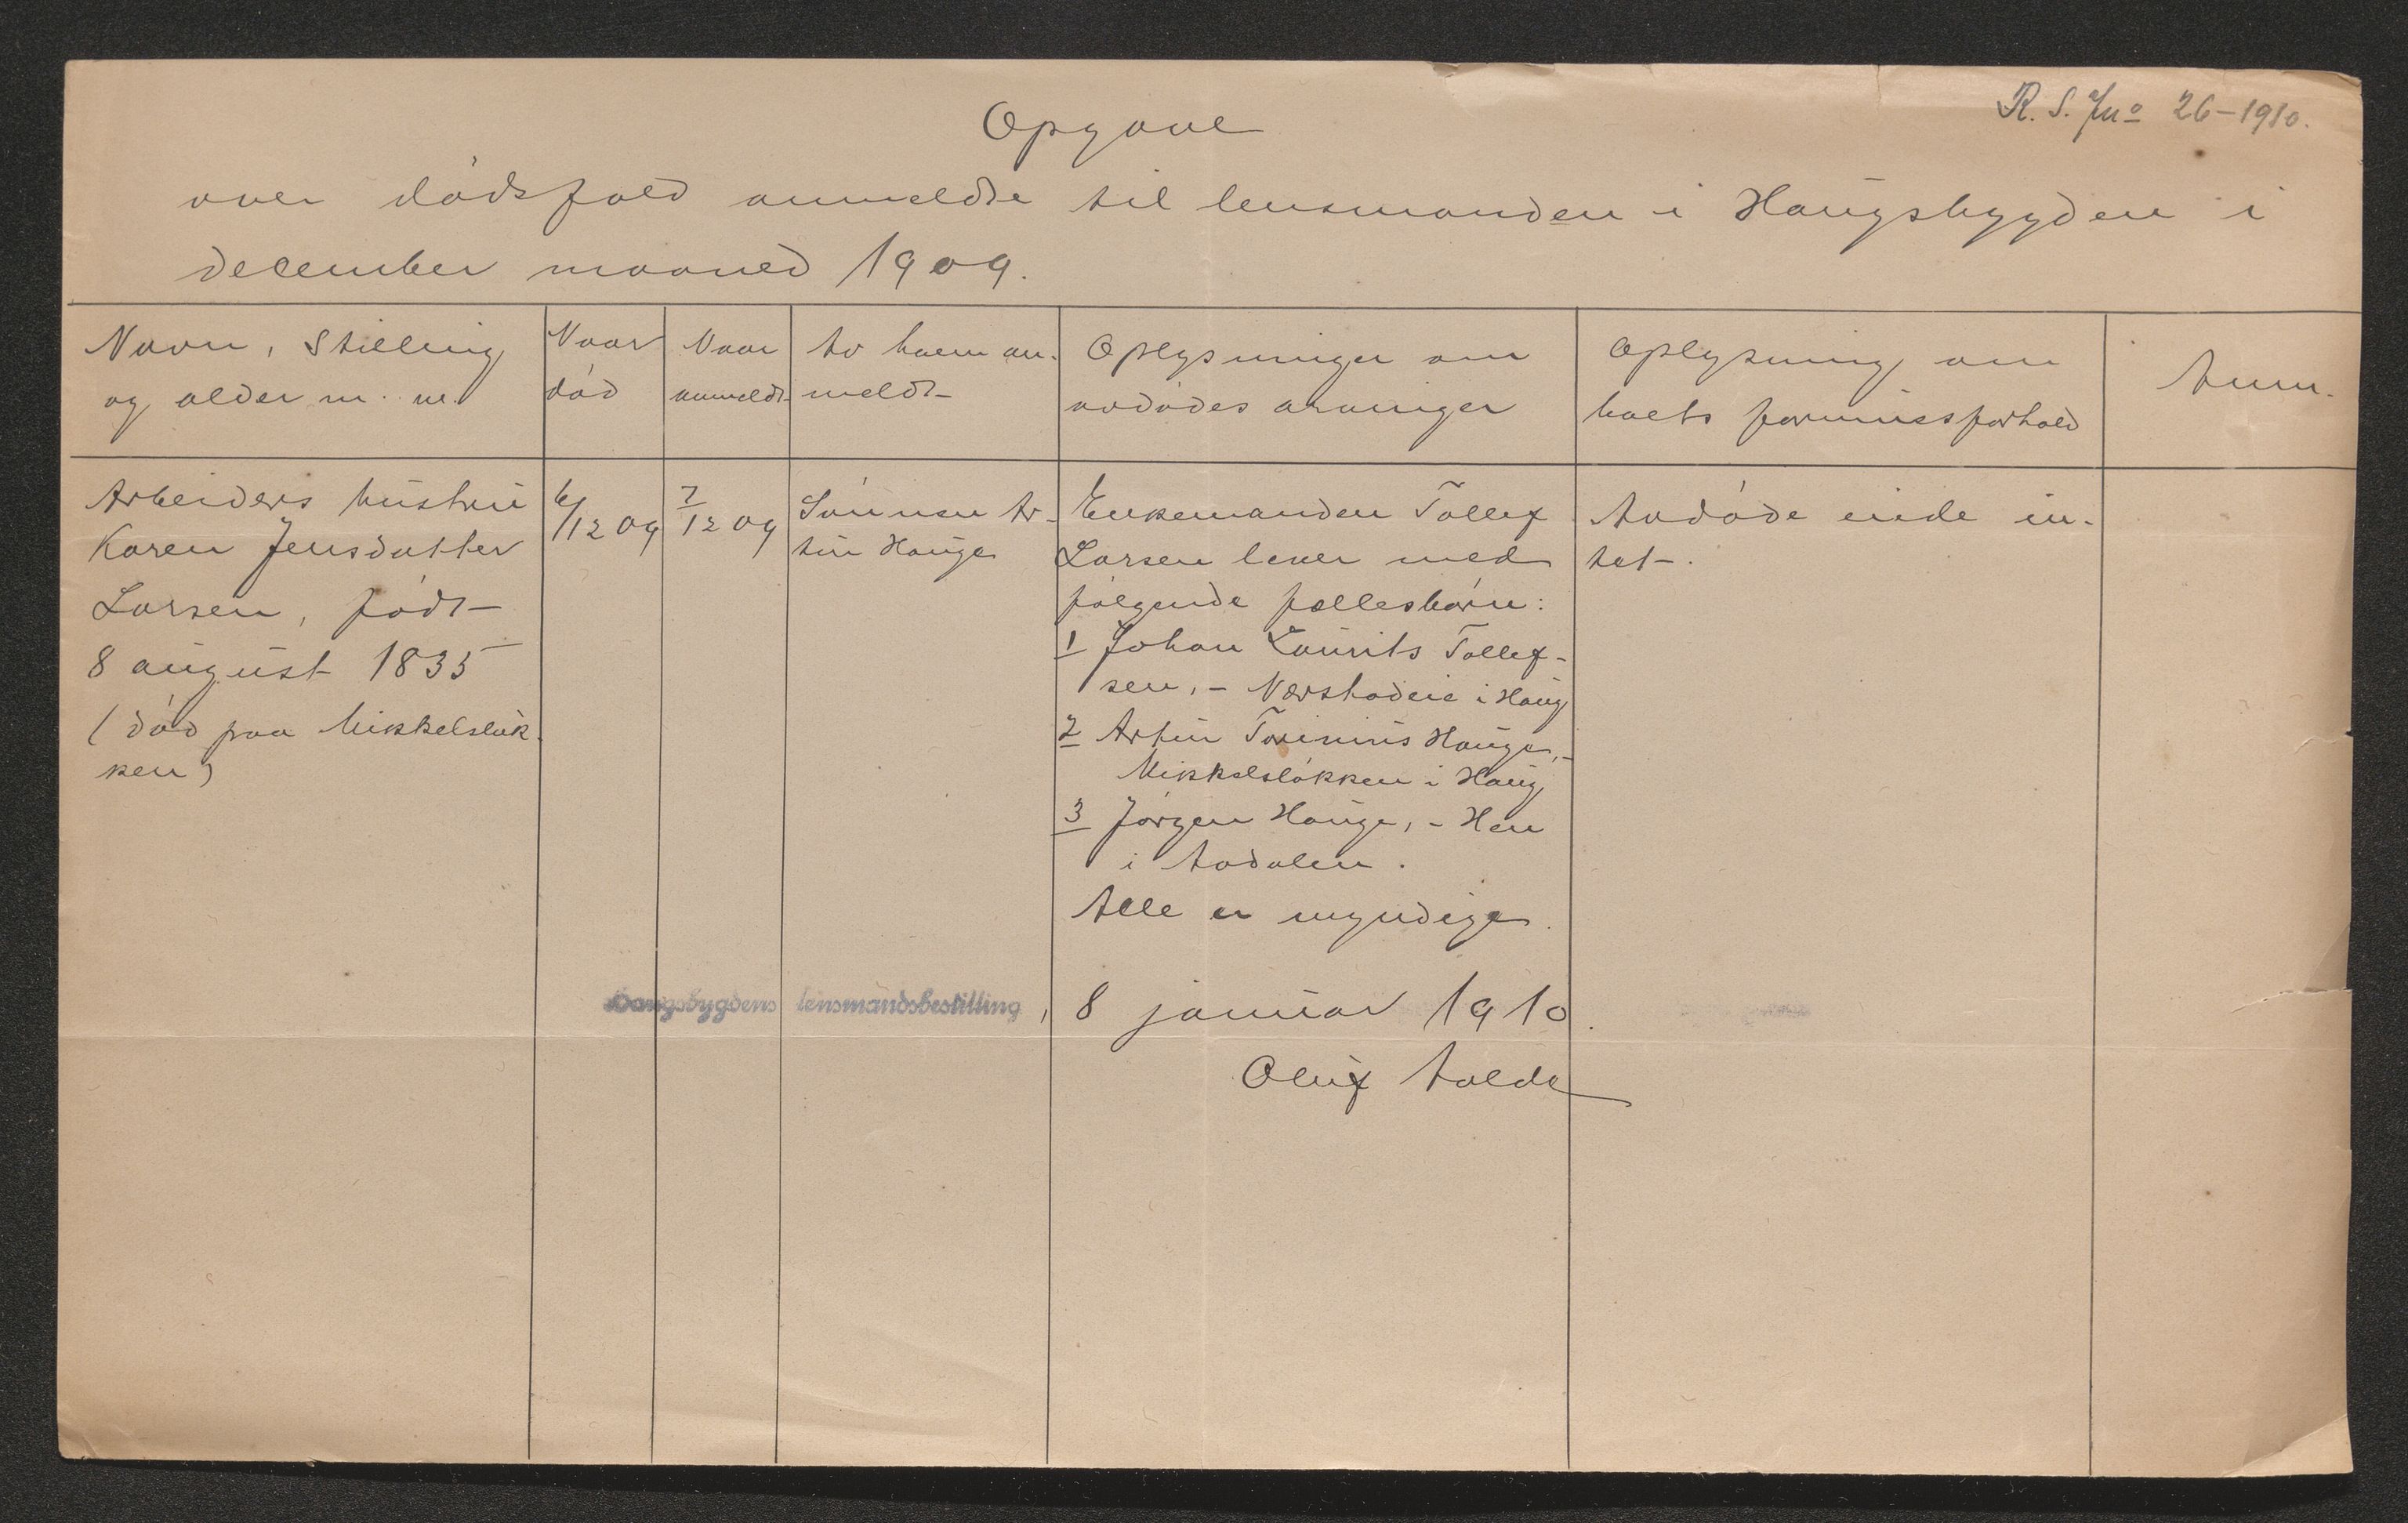 R. S. Jno 26-1910.
Opgave
over dödsfald anmeldte til lensmanden i Haugsbygden i
december maaned 1909.
Navn, stilling
og alder m. m.
Naar
död
Naar
anmeldt
Av hvem an-
meldt
Oplysninger om
avdödes arvinger
Oplysning om
boets formuesforhold
Anm.
Arbeiders hustru
Karen Jensdatter
Larsen, födt
8 august 1835
(död paa Mikkelslök-
ken)
6/12 09
7/12 09
Sönnen Ar-
tur Hauge
Enkemanden Tollef
Larsen lever med
fölgende fællesbörn:
1 Johan Laurits Tollef-
sen, - Nærstadeie i Haug
2 Artur Hauge, -
Mikkelslökken i Haug
3 Jörgen Hauge, - Hen
i Aadalen.
Alle er myndige.
Avdöde eiede in-
tet.
Haugsbygdens lensmandsbestilling, 8 januar 1910.
Oluf Aalde